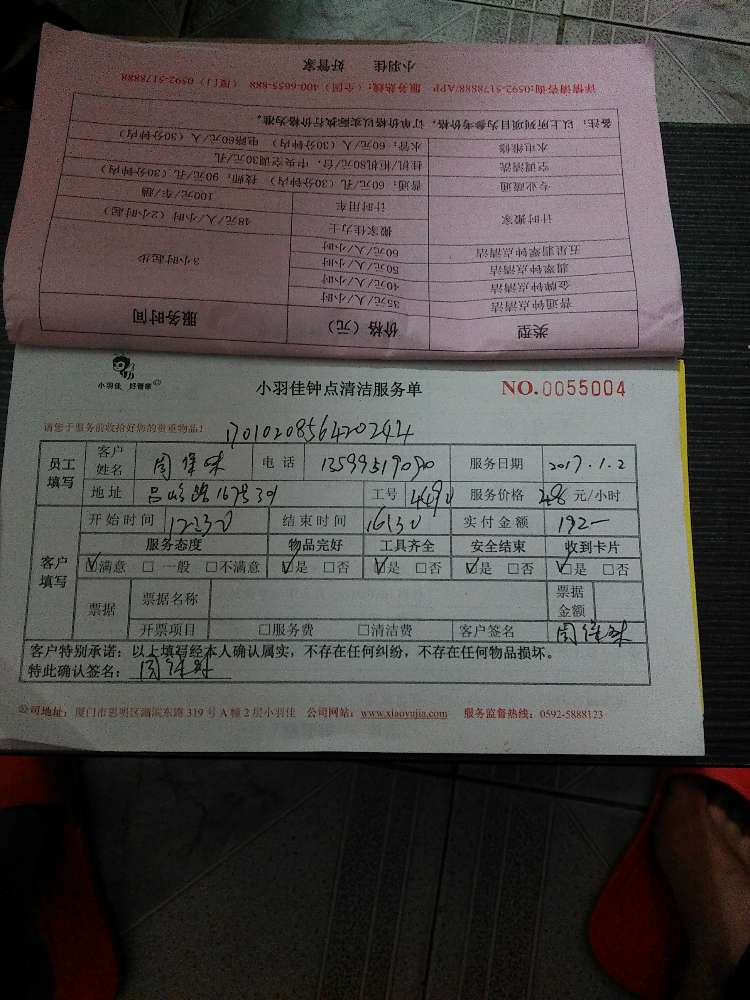 小羽佳 好管家
详情请咨询:0592-5178888/APP 服务热线:(全国)400-6655-888 (厦门)0592-5178888
备注:以上所列项目为参考价格,订单价格以实际执行价格为准。
水电维修 水:60元/人(30分钟内) 电路60元/人(30分钟内)
空调清洗 挂机/柜机80元/台,中央空调30元/孔
专业疏通 普通:60元/孔(30分钟内) 技师:90元/孔(30分钟内)
计时搬家 计时用车 100元/车/趟
搬家佳力士 48元/人/小时(2小时起)
五星翡翠钟点清洁 60元/人/小时
翡翠钟点清洁 50元/人/小时
金牌钟点清洁 40元/人/小时
普通钟点清洁 35元/人/小时
3小时起步
类型 价格(元) 服务时间
小羽佳 好管家
小羽佳钟点清洁服务单
NO.0055004
请您于服务前收拾好您的贵重物品!
1701020856420244
员工填写 客户姓名 电话 服务日期 2017.1.2
地址 吕岭路167号301 工号 服务价格 元/小时
客户填写 开始时间 1230 结束时间 1630 实付金额 192-
服务态度 物品完好 工具齐全 安全结束 收到卡片
☑满意 □一般 □不满意 ☑是 □否 ☑是 □否 ☑是 □否 ☑是 □否
票据 票据名称 票据金额
开票项目 □服务费 □清洁费 客户签名
客户特别承诺:以上填写经本人确认属实,不存在任何纠纷,不存在任何物品损坏。
特此确认签名:
公司地址:厦门市思明区湖滨东路319号A幢2层小羽佳 公司网站:www.xiaoyujia.com 服务监督热线:0592-5888123